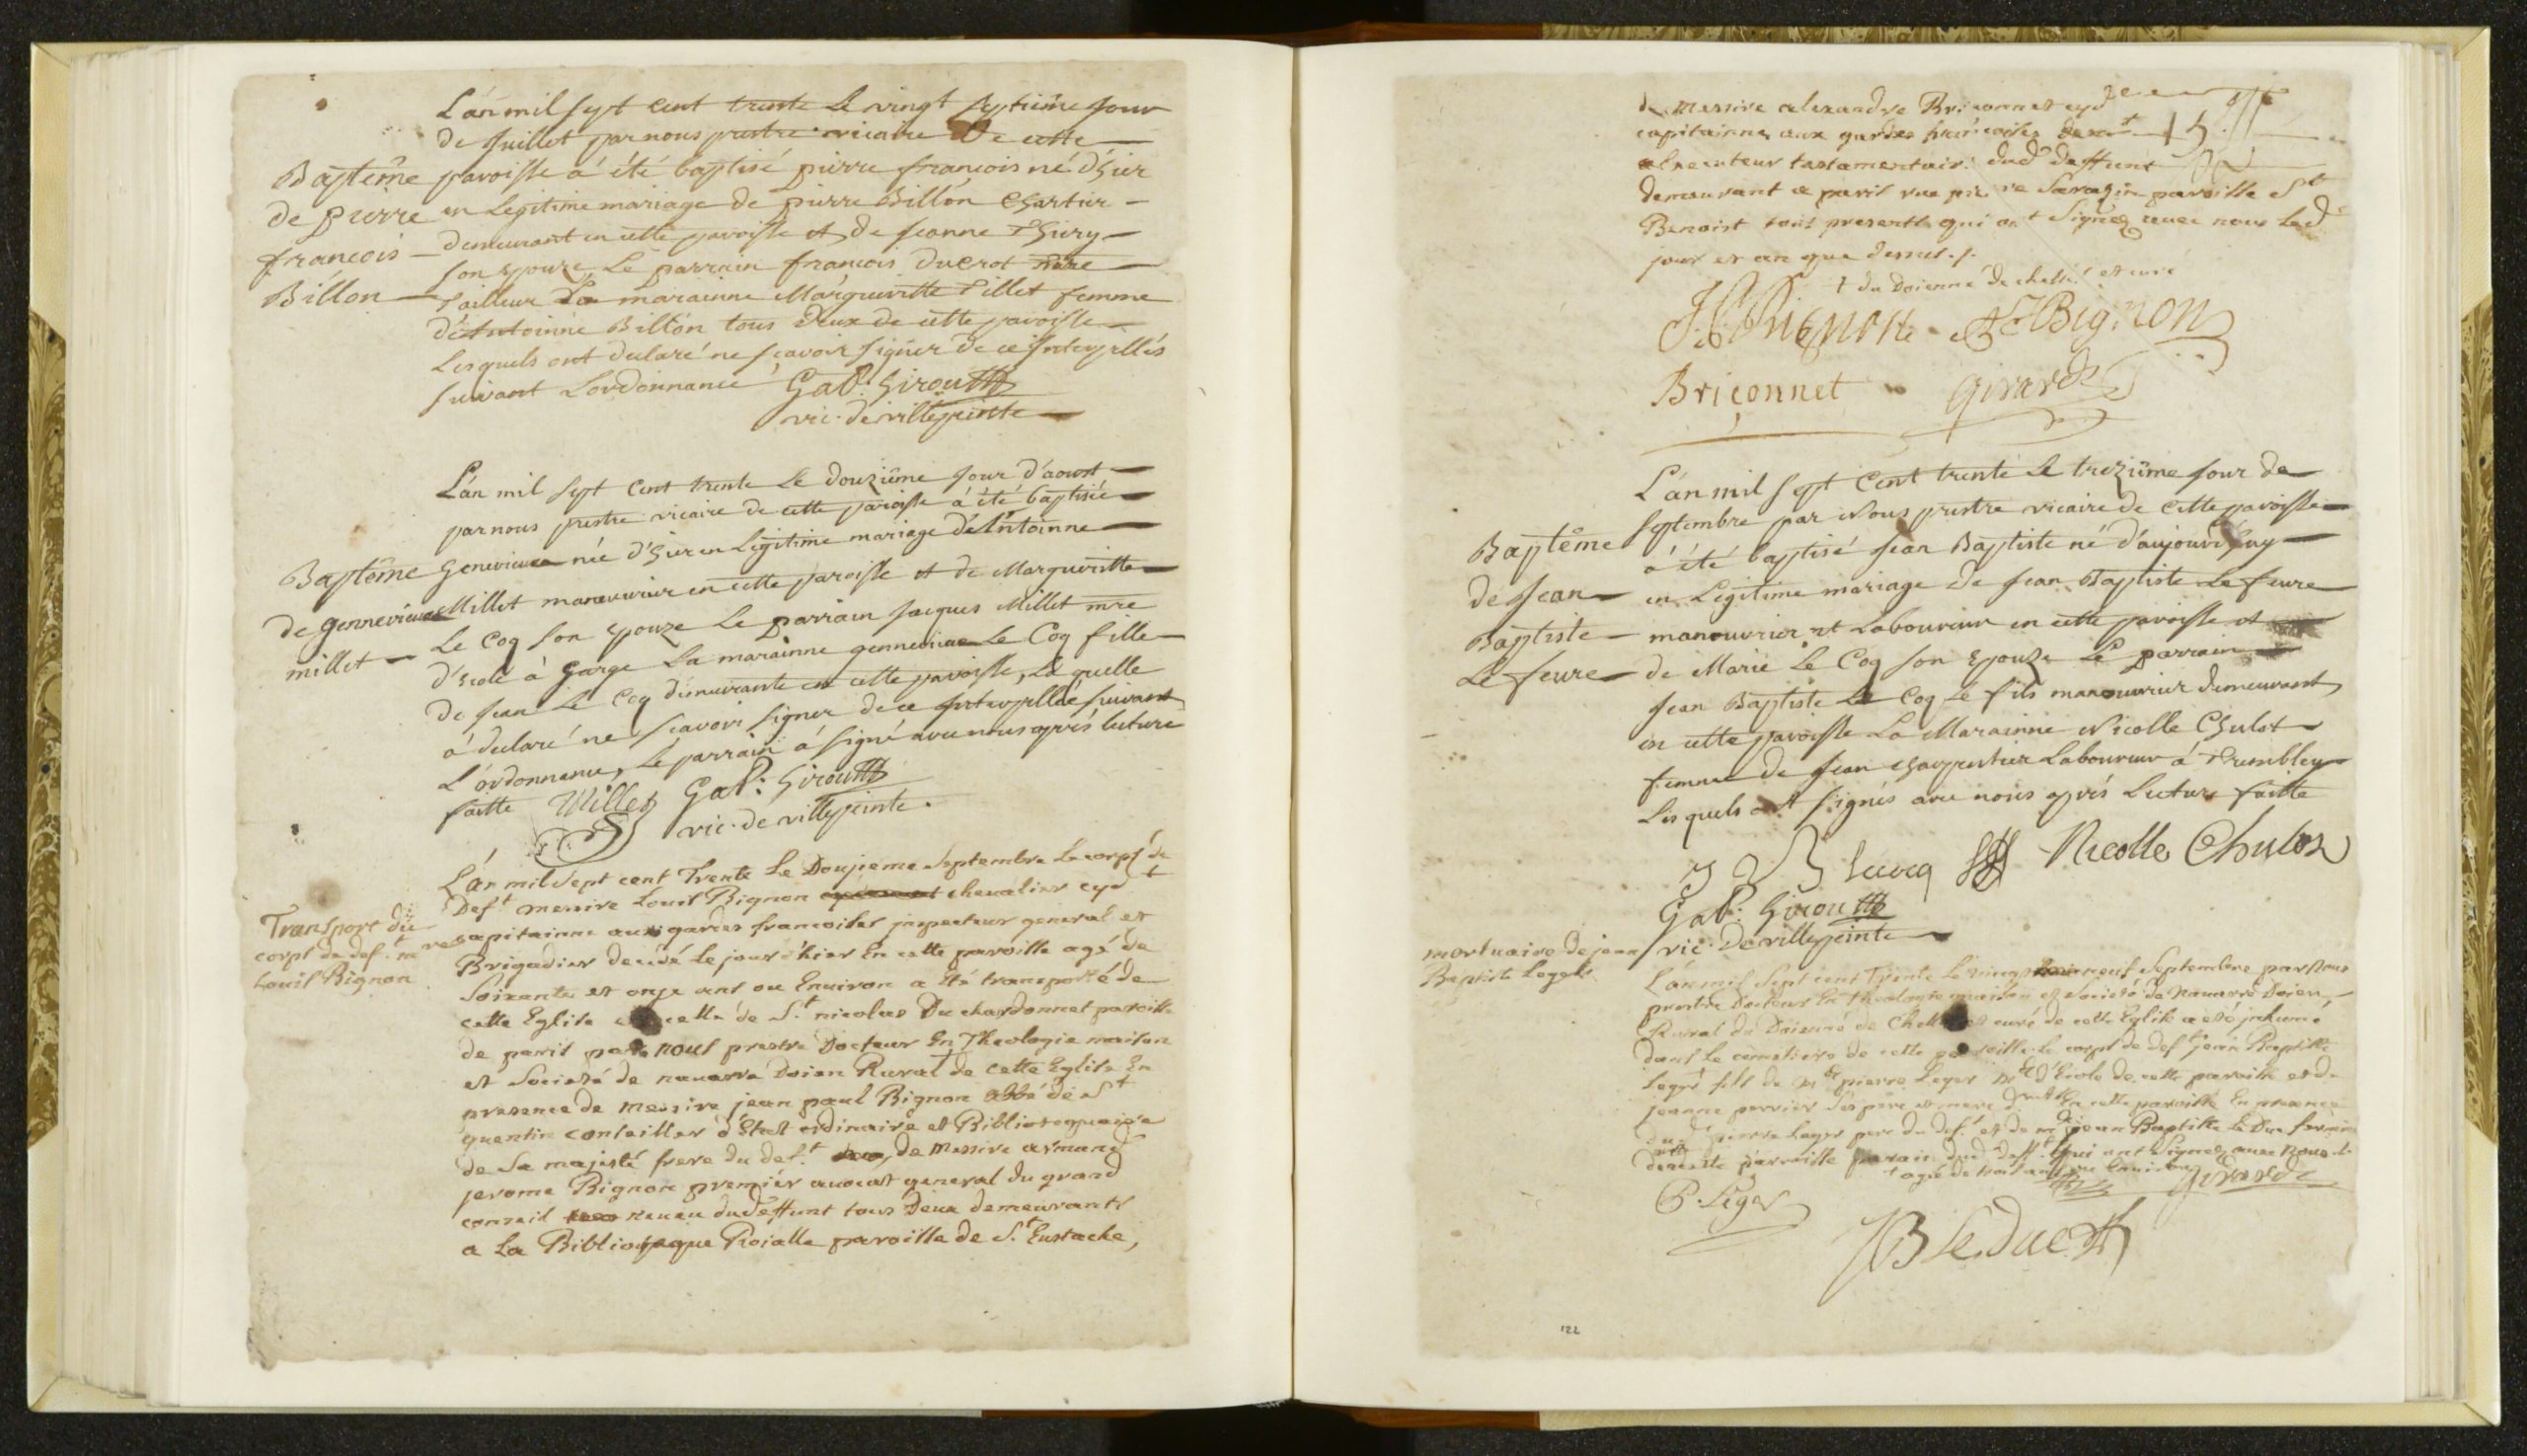 L'an mil sept cent trente le vingt septiéme jour
de Juillet par nous prestre vicaire de cette
Baptême paroisse à été baptisé pierre francois né d'hier
de pierre en Legitime mariage de pierre Billon Chartier
francois demeurant en cette paroisse et de Jeanne Thiery
Billon son epouze Le parrain francois Ducrot mtre
Tailleur La marainne Margueritte Tillet femme
d'Antoinne Billon tous deux de cette paroisse
Lesquels ont declaré ne sçavoir signer de ce Interpellés
suivant L'ordonnance Gab. Giroust
vic. de villepinte
L'an mil sept cent trente Le douziéme jour d'aoust
par nous prestre vicaire de cette paroisse à été baptisée
Baptême Genevieve née d'hier en Legitime mariage d'Antoinne
de Gennevieve Millet manouvrier en cette paroisse et de Margueritte
millet Le Coq son epouze Le parrain Jacques Millet mre
d'Ecole à Garge La marainne gennevieve Le Coq fille
de Jean Le Coq demeurante en cette paroisse, Laquelle
à declaré ne scavoir signer de ce Interpellée suivant
L'ordonnance, Le parrain à signé avec nous aprés lecture
faitte Millet Gab. Giroust
vic. de villepinte.
L'an mil Sept cent Trente Le Douzieme Septembre Le corps de
Deft messire Louis Bignon chevalier cyd t
Transport du
corps de def.t mre
Louis Bignon
capitainne aux gardes francoises inspecteur general et
Brigadier decedé Le jour d'hier En cette paroisse agé de
Soixante et onze ans ou Environ a été transporté de
cette Eglise a celle de St nicolas Du chardonnet paroisse
de paris par nous prestre Docteur En Theologie maison
et Societé de navarre Doien Rural de cette Eglise En
presence de messire jean paul Bignon Abbé de St
quentin conseiller d'Etat ordinaire et Bibliotequaire
de Sa majesté frere du def.t de Messire armand
jerome Bignon premier avocat general du grand
conseil neveu dudeffunt tous Deux demeurants
a La Biblioteque Roialle paroisse de St Eustache,
de Messire alexandre Briconnet cyd
capitainne aux gardes francoises
Executeur testamentaire dud deffunt
demeurant a paris rue pierre Sarazin paroisse St
Benoist tous presents qui ont Signez avec nous Led
jour et an que dessus./.
t du Doienné de chelles et curé
J. P. Bignon A J Bignon
Briçonnet Girard
L'an mil sept Cent trente Le treziéme jour de
septembre par Nous prestre vicaire de Cette paroisse
Baptême à été baptisé Jean Baptiste né d'aujourd'huy
de Jean en Legitime mariage de Jean Baptiste Le feure
Baptiste manouvrier et Laboureur en cette paroisse et
Le feure de Marie Le Coq son Epouze Le parrain
Jean Baptiste Le Coq Le fils manouvrier demeurant
en cette paroisse La Marainne Nicolle Chulot
femme de Jean Charpentier Laboureur à Tremblay
Lesquels ont signés avec nous aprés Lecture faitte
J B lecoq Nicolle Chulot
Gab. Giroust
vic. De villepinte
mortuaire de jean
Baptiste Leger
L'an mil Sept cent Trente Le vingt neuf Septembre par Nous
prestre Docteur En theologie maison et Societé de Navarre Doien
Rural du Doienné de Chelles et curé de cette Eglise a eté inhumé
dans Le cimetiere de cette paroisse Le corps de deft jean Baptiste
Leger fils de Mtre pierre Leger Mtre d'Ecole de cette paroisse et de
jeanne perrier Ses pere et mere en cette paroisse En presence
dud pierre Leger pere du def.t et de jean Baptiste Le Duc fermier
de cette parroisse parain dud deff.t qui ont Signez avec Nous
t agé de trois ans ou Environ Girard
P. Leger
J B Le Duc
122